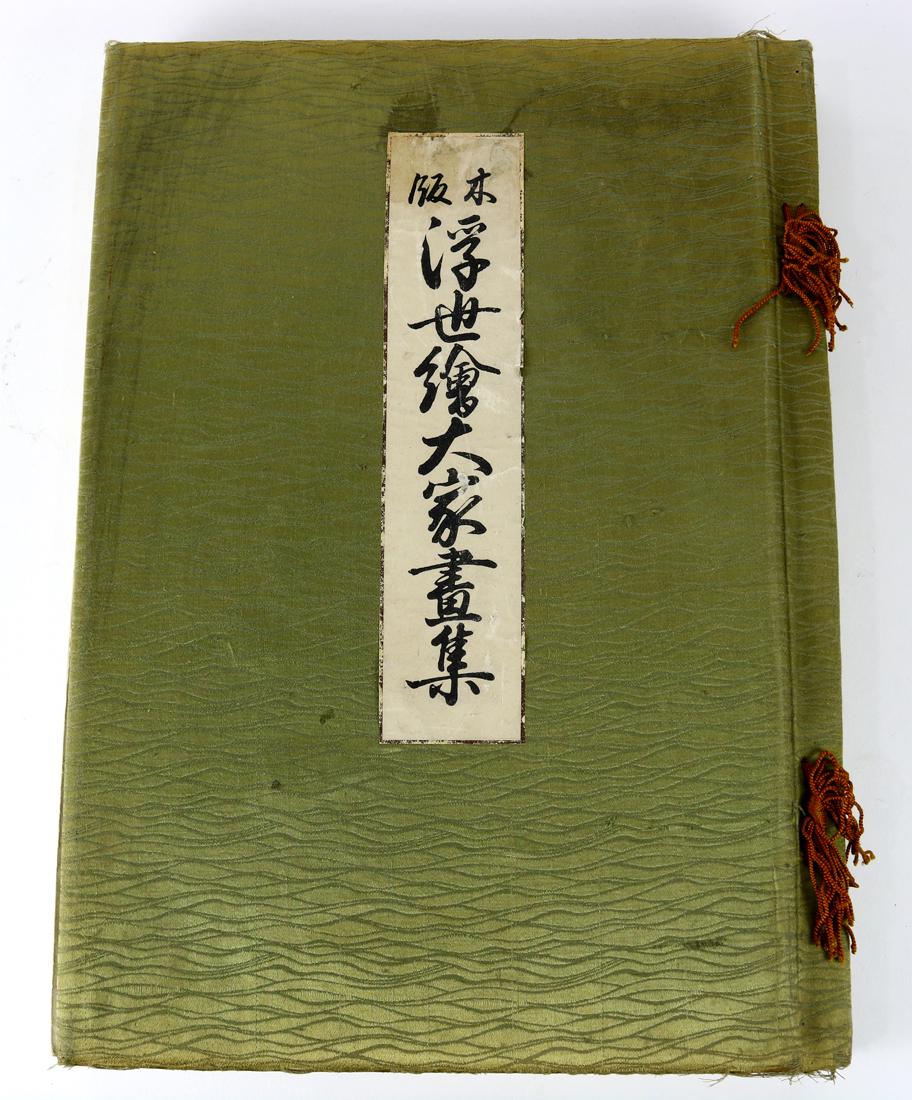 木版
浮世繪大家畫集